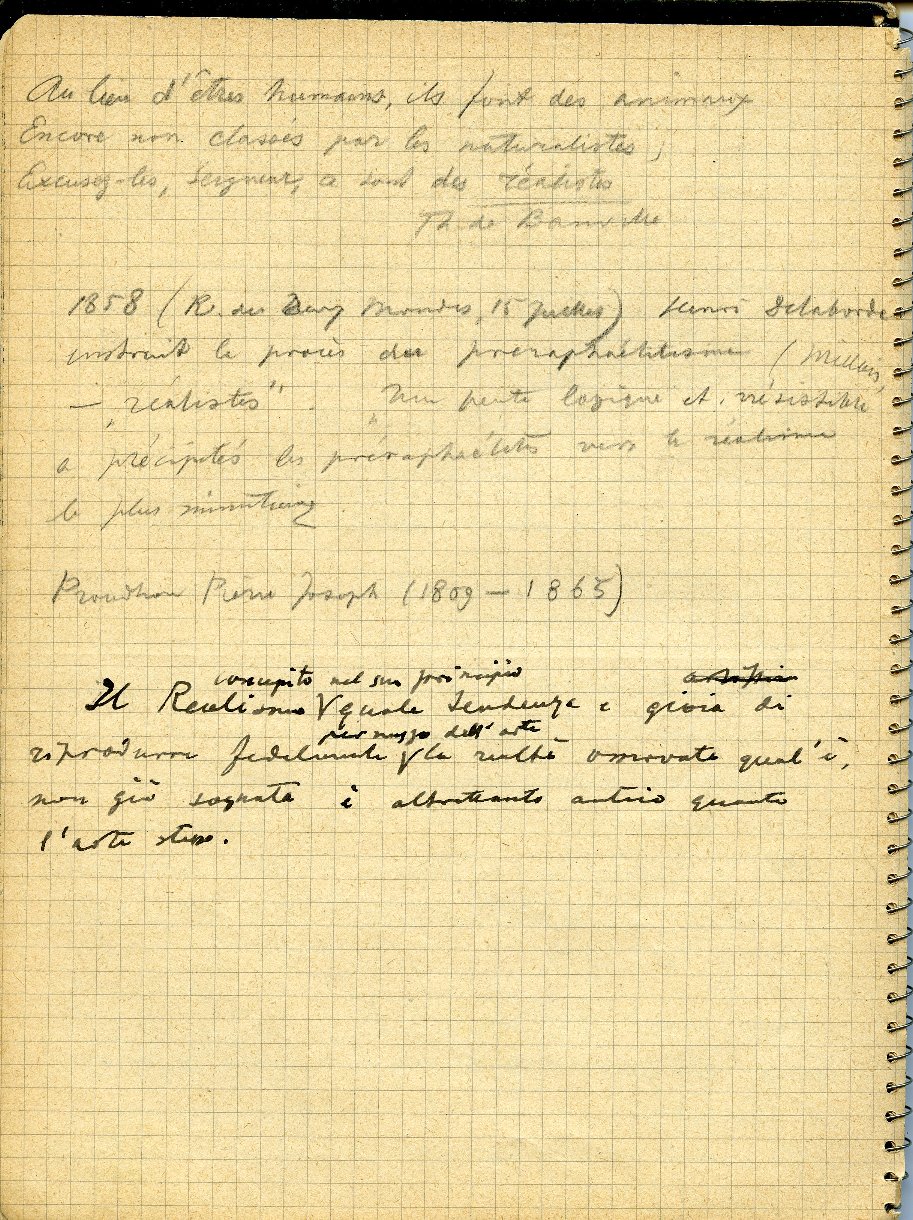 Au lieu d'êtres humains, ils font des animaux
Encore non classés par les naturalistes ;
Excusez-les, Seigneur, ce sont des réalistes
Th. de Banville
1858 (R. des Deux Mondes, 15 Juillet) Henri Delaborde
instruit le procès du preraphaélitisme (Millais,
— "réalistes". "Une pente logique et irrésistible
a précipités les préraphaélites vers le réalisme
le plus minutieux
Proudhon Pierre Joseph (1809 — 1865)
concepito nel suo principio
Il Realismo V quale tendenza e gioia di
per mezzo dell'arte
riprodurre fedelmente V la realtà osservata qual'è,
non già sognata è altrettanto antico quanto
l'arte stessa.